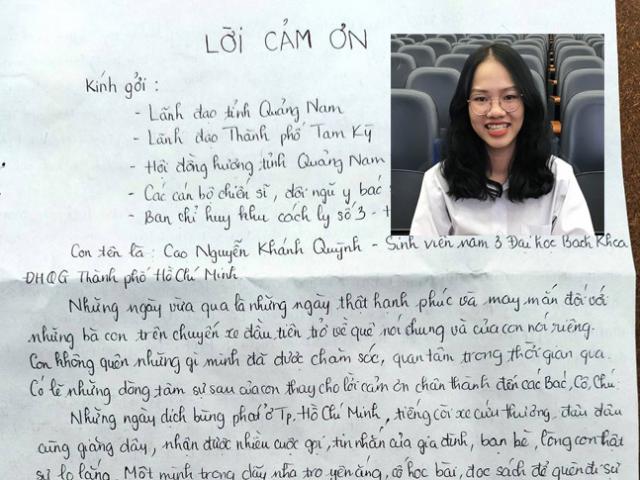 LỜI CẢM ƠN
Kính gởi :
- Lãnh đạo tỉnh Quảng Nam
- Lãnh đạo Thành phố Tam Kỳ
- Hội đồng hương tỉnh Quảng Nam
- Các cán bộ chiến sĩ, đội ngũ y bác
- Ban chỉ huy khu cách ly số 3 -
Con tên là : Cao Nguyễn Khánh Quỳnh - Sinh viên năm 3 Đại học Bách Khoa
ĐHQG Thành phố Hồ Chí Minh.
Những ngày vừa qua là những ngày thật hạnh phúc và may mắn đối với
những bà con trên chuyến xe đầu tiên trở về quê nói chung và của con nói riêng.
Con không quên những gì mình đã được chăm sóc, quan tâm trong thời gian qua.
Có lẽ những dòng tâm sự sau của con thay cho lời cảm ơn chân thành đến các Bác, Cô, Chú.
Những ngày dịch bùng phát ở Tp. Hồ Chí Minh, tiếng còi xe cứu thương đâu đâu
cũng giăng dây, nhận được nhiều cuộc gọi, tin nhắn của gia đình, bạn bè, lòng con thật
sự lo lắng. Một mình trong dãy nhà trọ yên ắng, cố học bài, đọc sách để quên đi sự